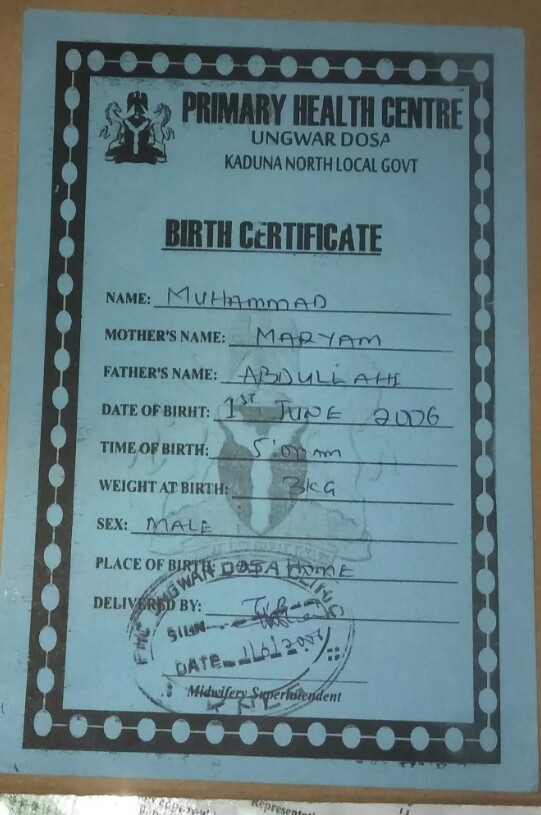 PRIMARY HEALTH CENTRE
UNGWAR DOSA
KADUNA NORTH LOCAL GOVT
BIRTH CERTIFICATE
NAME: MUHAMMAD
MOTHER'S NAME: MARYAM
FATHER'S NAME: ABDULLAHI
DATE OF BIRHT: 1ST JUNE 2006
TIME OF BIRTH:
WEIGHT AT BIRTH: 3KG
SEX: MALE
PLACE OF BIRTH: AT HOME
DELIVERED BY:
UNGWAN DOSA CLINIC
SIGN
DATE
Midwifery Superintendent